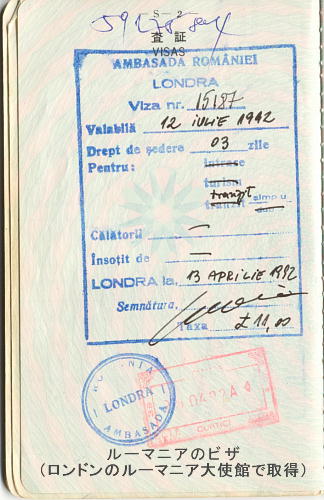 S - 2
査 証
VISAS
AMBASADA ROMÂNIEI
LONDRA
Viza nr. 15187
Valabilă 12 IULIE 1992
Drept de ședere 03 zile
Pentru: intrare
turism
tranzit simplu
tranzit dus
Călătorii —
Însoțit de —
LONDRA la, 13 APRILIE 1992
Semnătura,
Taxa £ 11,00
ROMÂNIA
LONDRA
AMBASADA
0492A 4
CURTICI
ルーマニアのビザ
(ロンドンのルーマニア大使館で取得)